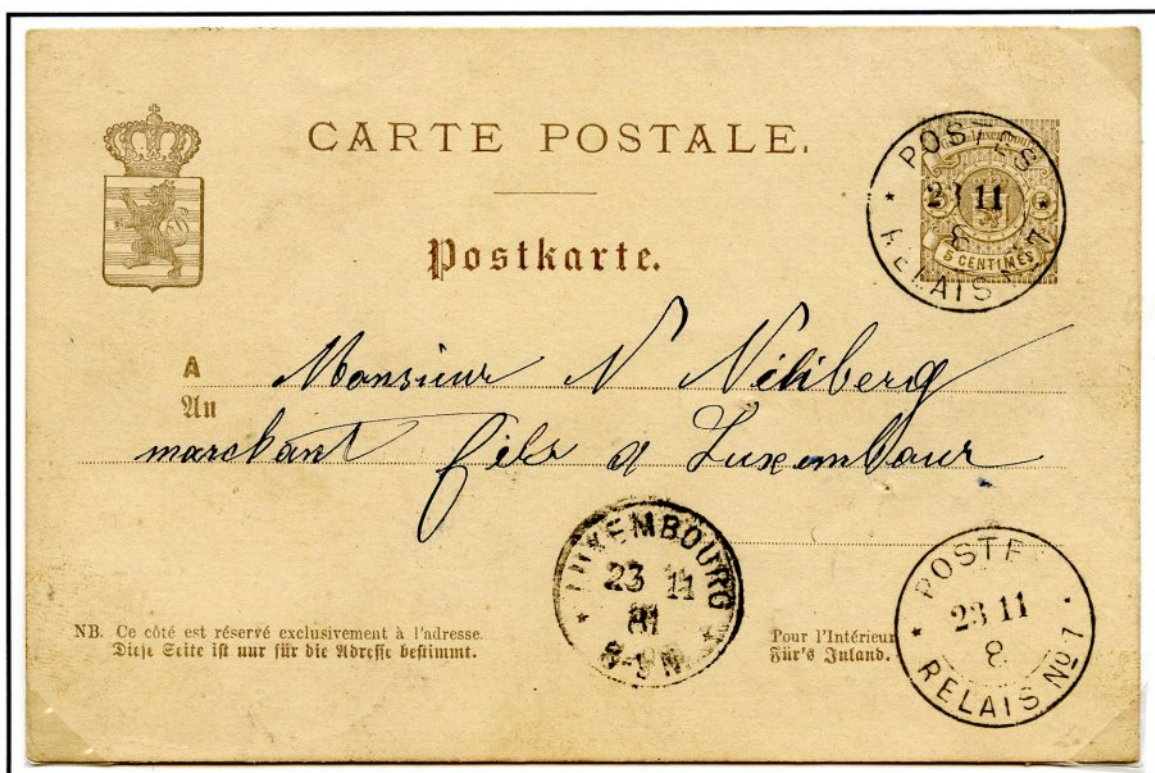 CARTE POSTALE.
Postkarte.
POSTES
23 11
8
RELAIS No 1
Gd Duché de Luxembourg
5 5
5 CENTIMES
A Monsieur N
An
marchant fils a Luxembour
LUXEMBOURG
23 11
81
8-9 N
POSTE
23 11
8
RELAIS No 1
NB. Ce côté est réservé exclusivement à l'adresse.
Diese Seite ist nur für die Adresse bestimmt.
Pour l'Intérieur
Für's Inland.